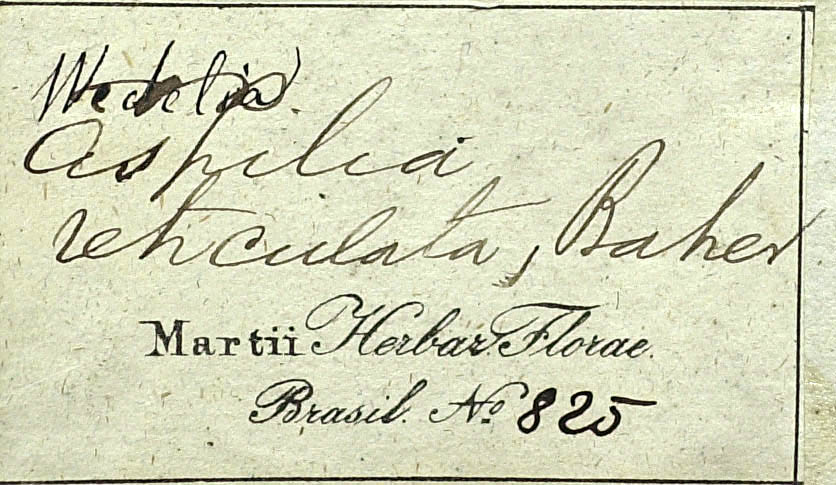 Wedelia
Aspilia
reticulata, Baker
Martii Herbar. Florae
Brasil. No. 825